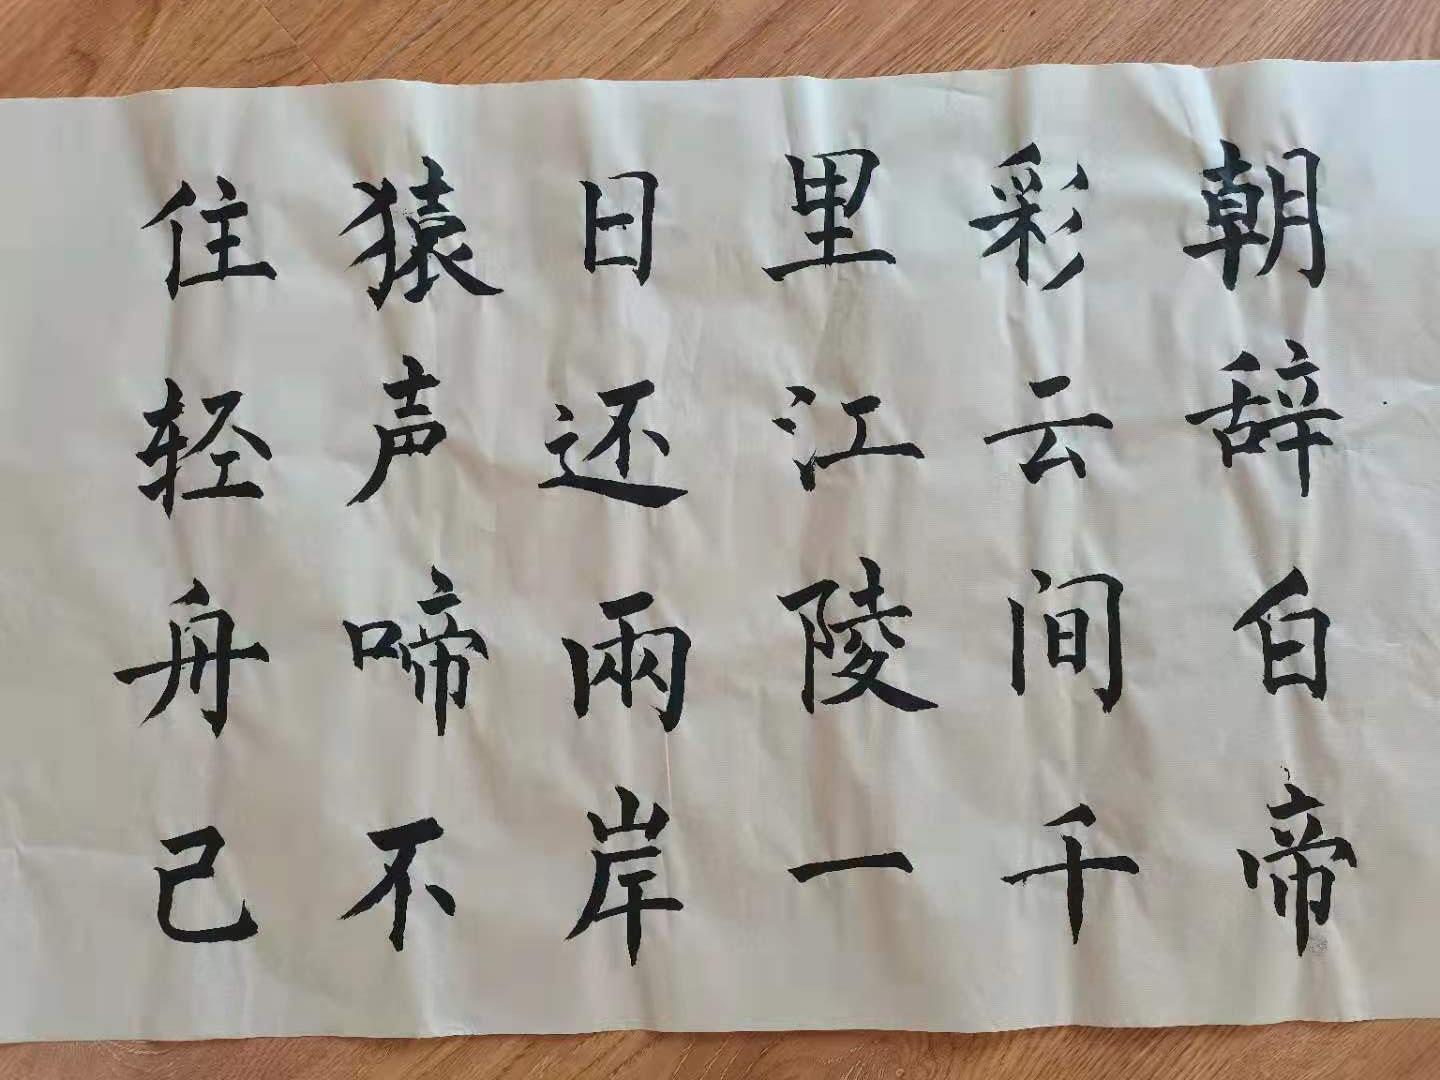 朝辞白帝
彩云间千
里江陵一
日还兩岸
猿声啼不
住轻舟己